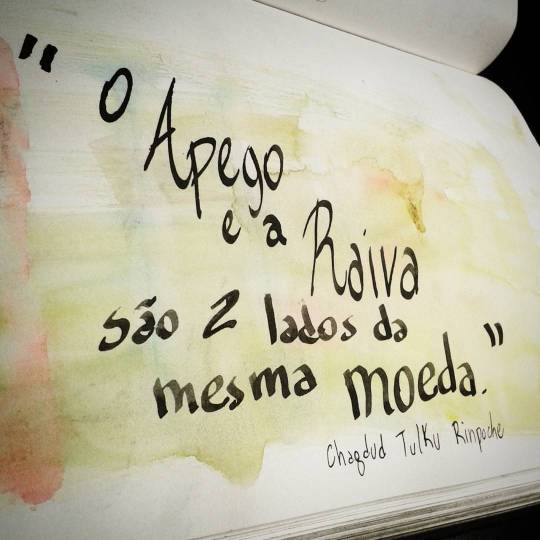 "O
Apego
e a
Raiva
são 2 lados da
mesma moeda."
Chagdud Tulku Rinpoche